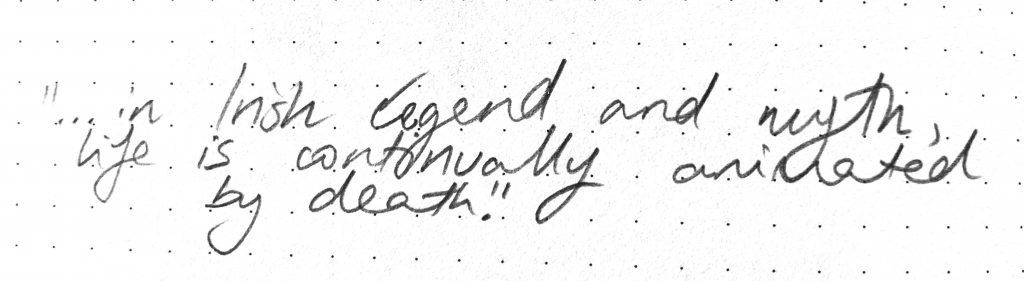 "...in Irish legend and myth,
life is continually animated
by death."